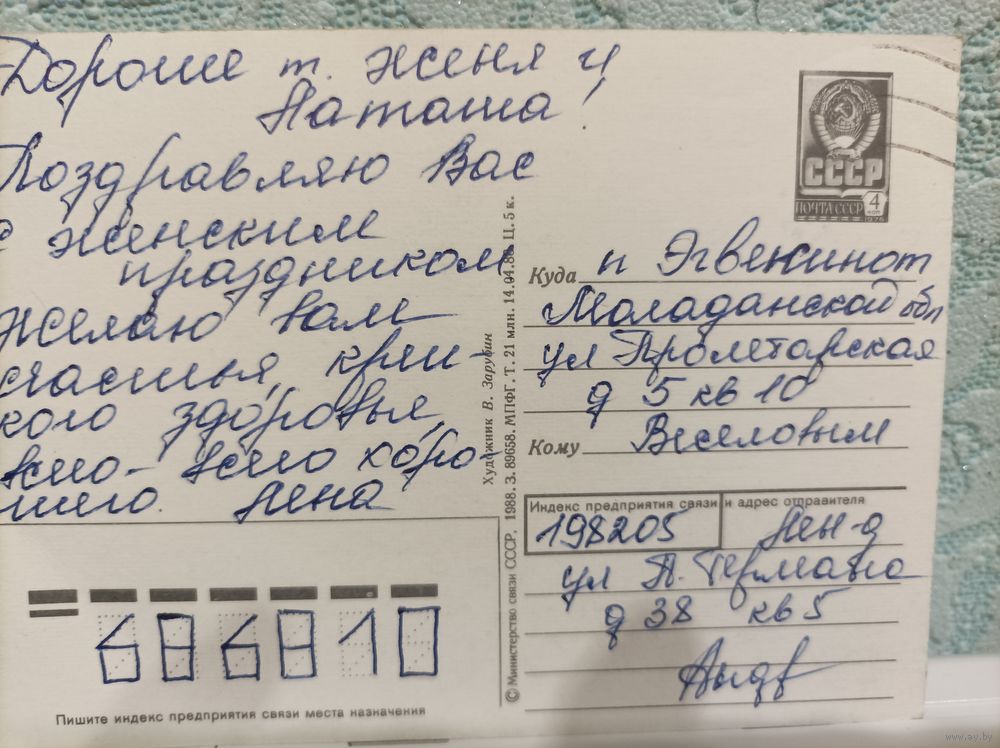 Дорогие т. Женя и
Наташа!
Поздравляю Вас
с женским
праздником,
Желаю вам
счастья, креп-
кого здоровья,
всего-всего хоро-
шего. Лена
СССР
ПОЧТА СССР 4 коп
1976
Куда п Эгвекинот
Магаданской обл
ул Пролетарская
д 5 кв 10
Кому Веселовым
Индекс предприятия связи и адрес отправителя
198205 Лен-д
ул П. Германа
д 38 кв 5
Художник В. Зарубин
© Министерство связи СССР, 1988. З. 89658. МПФГ. Т. 21 млн. 14.04.88 Ц. 5 к.
686810
Пишите индекс предприятия связи места назначения
www.av.by